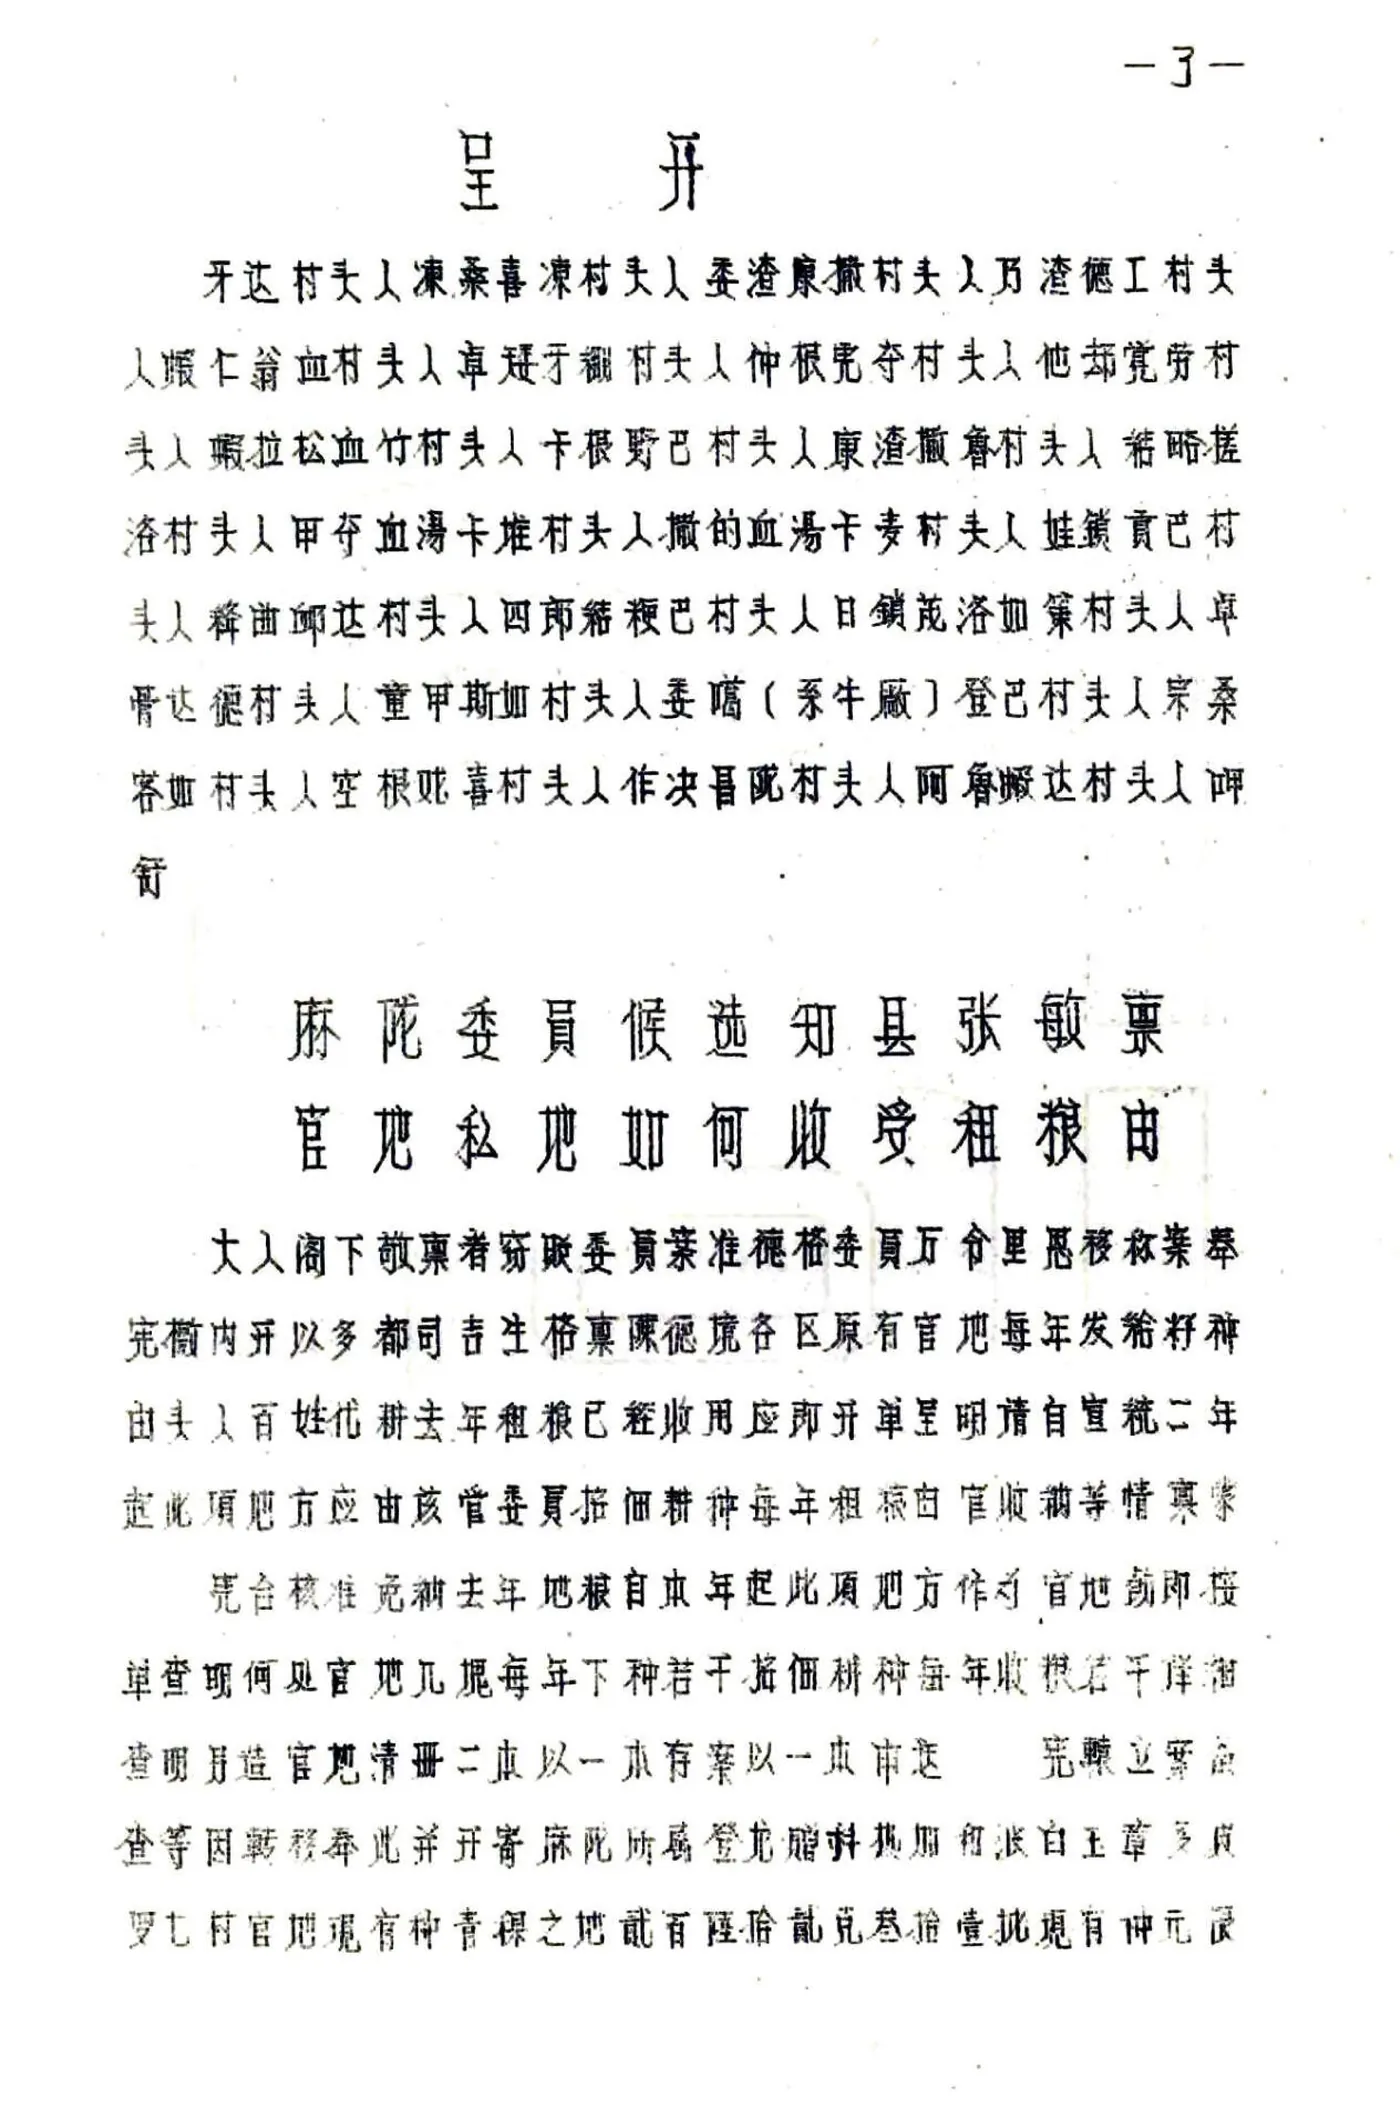 -3-
呈 开
牙达村头人凍桑喜凍村头人委渣康撒村头人乃渣德工村头
人蝦仁翁血村头人卓矮牙棚村头人仲根宪夺村头人他却宽劳村
头人蝦拉松血竹村头人卡根野巴村头人康渣撒鲁村头人结略搓
洛村头人甲夺血湯卡堆村头人撒的血湯卡麦村头人娃鎖貢巴村
头人降曲邱达村头人四郎結粳巴村头人日鎖茂洛如策村头人卓
骨达德村头人童甲斯如村头人委噶(系牛廠)登巴村头人宗桑
客如村头人空根贶喜村头人作决昌陇村头人阿魯蝦达村头人呷
麻陇委員候选知县张敏禀
官地私地如何收受租粮由
大人阁下敬禀者窃照委員案准德格委員万令里恩移称案奉
宪檄内开以多都司吉生格禀陳德境各区原有官地每年发給籽种
由头人百姓代耕去年租粮已經收用应即开单呈明请自宣統二年
起此項地方应由該管委員招佃耕种每年租粮由官收納等情禀蒙
宪台核准免納去年地粮自本年起此項地方作为官地飭即按
单查明何处官地几塊每年下种若干招佃耕种每年收粮若干详細
查明另造官地清册二本以一本存案以一本申送 宪轅立案备
查等因转移奉此并开寄麻陇所属登龙 科 加 波白玉章多
罗七村官地現有种青稞之地貳百陸拾貳克叁拾壹批現有仲元